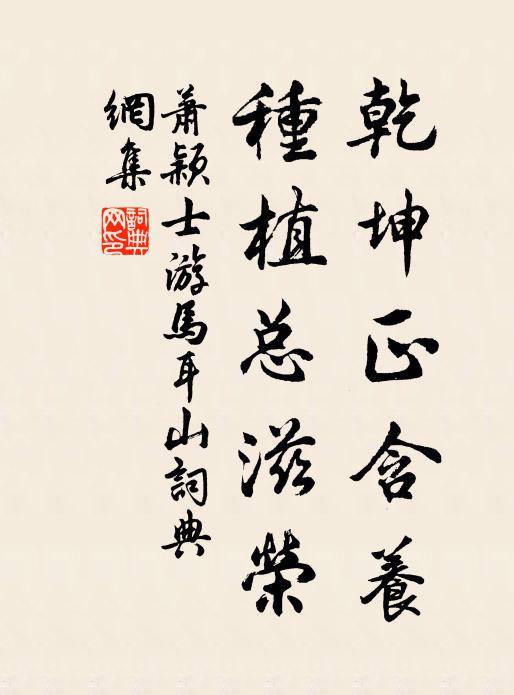 乾坤正含養
種植总滋榮
萧颖士游馬耳山詞典
網集
詞典網印